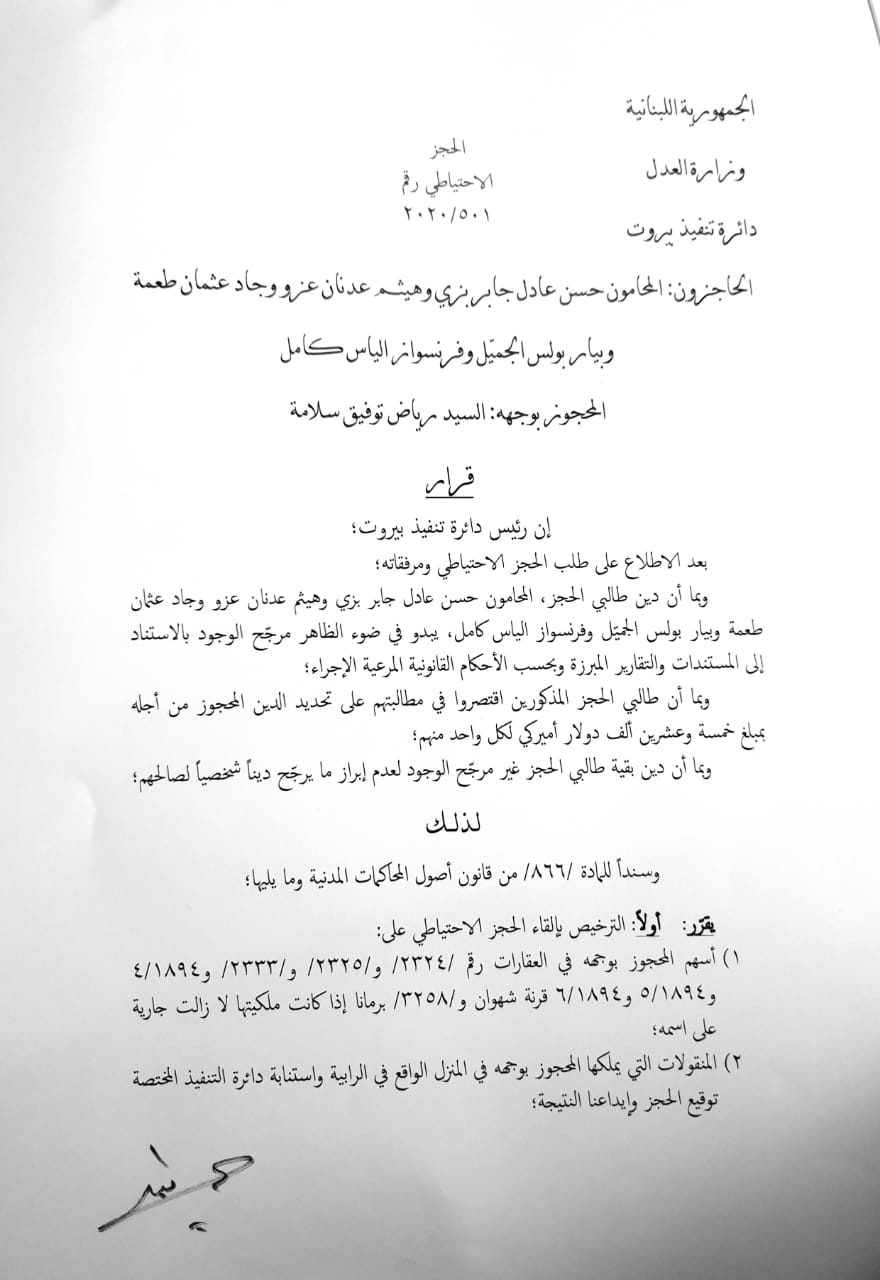 الجمهورية اللبنانية
وزارة العدل
دائرة تنفيذ بيروت
الحجز
الاحتياطي رقم
٢٠٢٠/٥٠١
الحاجزون: المحامون حسن عادل جابر بزي وهيثم عدنان عزو وجاد عثمان طعمة
وبيار بولس الجميّل وفرنسواز الياس كامل
المحجوز بوجهه: السيد رياض توفيق سلامة
قرار
إن رئيس دائرة تنفيذ بيروت؛
بعد الاطلاع على طلب الحجز الاحتياطي ومرفقاته؛
وبما أن دين طالبي الحجز، المحامون حسن عادل جابر بزي وهيثم عدنان عزو وجاد عثمان
طعمة وبيار بولس الجميّل وفرنسواز الياس كامل، يبدو في ضوء الظاهر مرجّح الوجود بالاستناد
إلى المستندات والتقارير المبرزة وبحسب الأحكام القانونية المرعية الإجراء؛
وبما أن طالبي الحجز المذكورين اقتصروا في مطالبتهم على تحديد الدين المحجوز من أجله
بمبلغ خمسة وعشرين ألف دولار أميركي لكل واحد منهم؛
وبما أن دين بقية طالبي الحجز غير مرجّح الوجود لعدم إبراز ما يرجّح ديناً شخصياً لصالحهم؛
لذلك
وسنداً للمادة /٨٦٦/ من قانون أصول المحاكمات المدنية وما يليها؛
يقرّر: أولاً: الترخيص بإلقاء الحجز الاحتياطي على:
١) أسهم المحجوز بوجهه في العقارات رقم /٢٣٢٤/ و/٢٣٢٥/ و/٢٣٣٣/ و٤/١٨٩٤
و٥/١٨٩٤ و٦/١٨٩٤ قرنة شهوان و/٣٢٥٨/ برمانا إذا كانت ملكيتها لا زالت جارية
على اسمه؛
٢) المنقولات التي يملكها المحجوز بوجهه في المنزل الواقع في الرابية واستنابة دائرة التنفيذ المختصة
توقيع الحجز وإيداعنا النتيجة؛